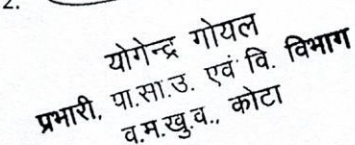 2.
योगेन्द्र गोयल
प्रभारी, पा.सा.उ. एवं वि. विभाग
व.म.खु.व., कोटा